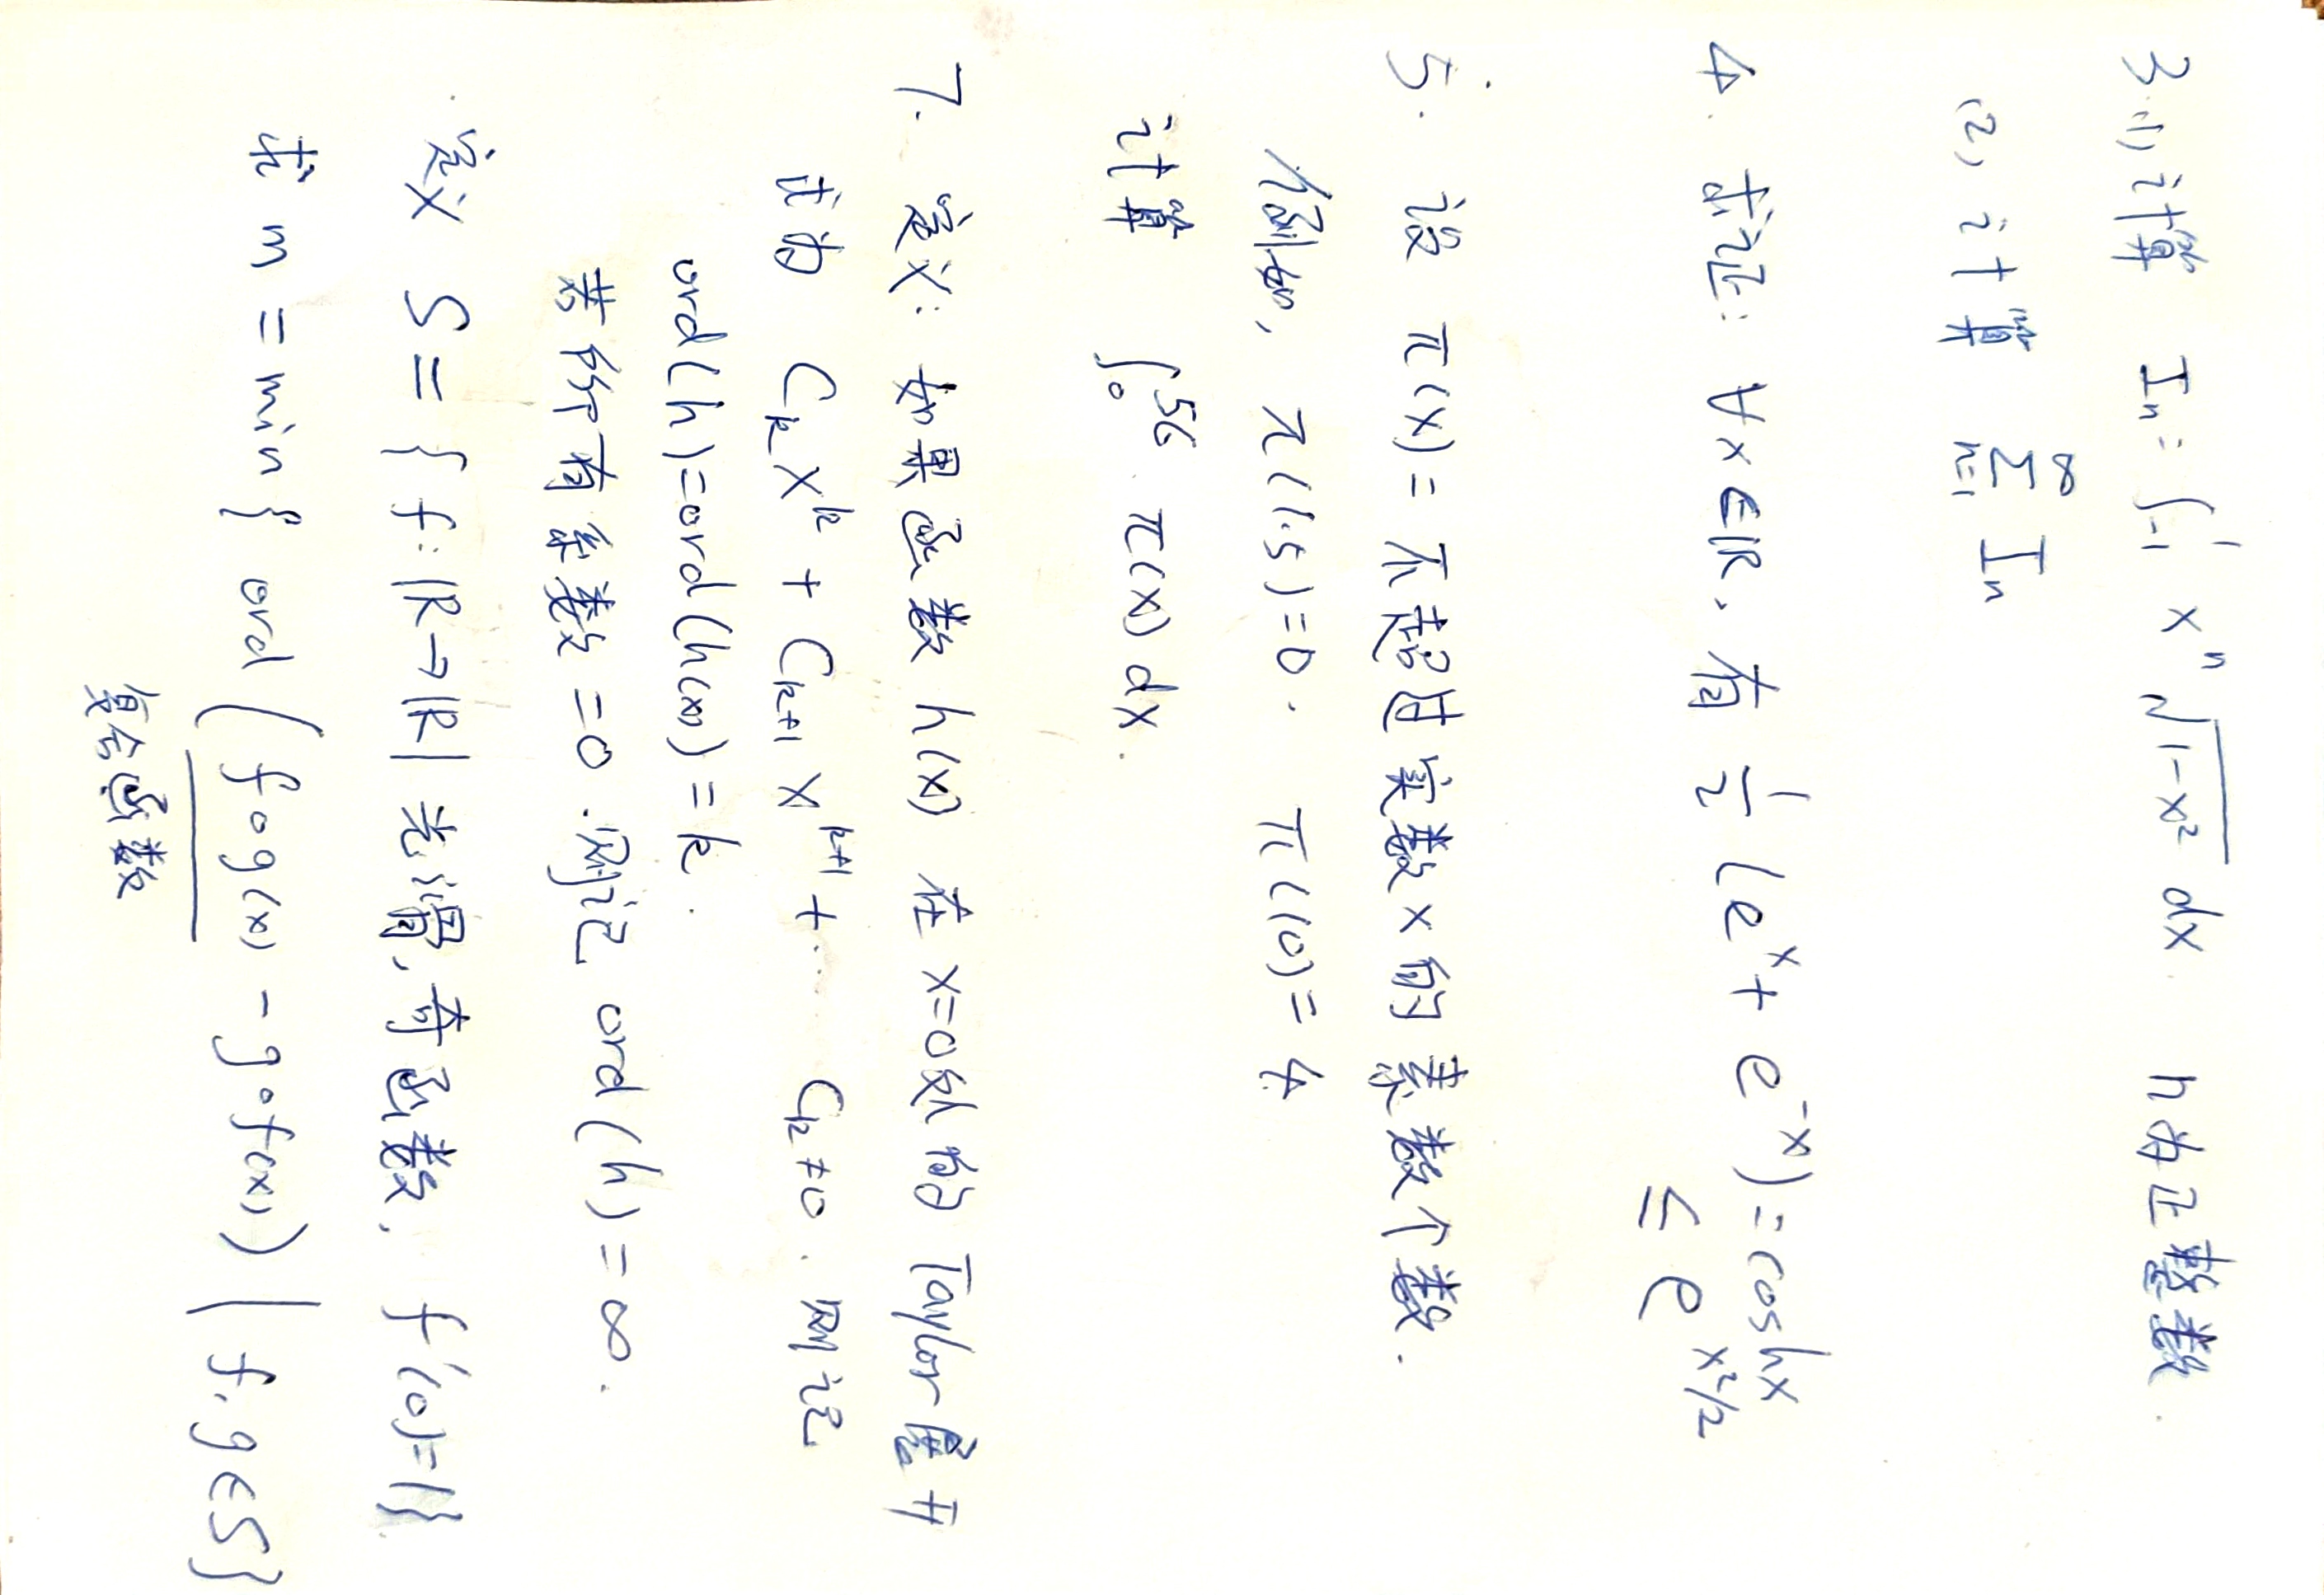 3.(1) 计算 Iₙ = ∫₋₁¹ xⁿ √(1-x²) dx n为正整数.
(2) 计算 ∑ₙ₌₁^∞ Iₙ
4. 求证: ∀x∈ℝ, 有 1/2 (eˣ + e⁻ˣ) = cosh x
≤ e^(x²/2)
5. 设 π(x) = 不超过实数x的素数个数.
例如, π(1.5)=0. π(10)=4
计算 ∫₀⁵⁶ π(x) dx.
7. 定义: 如果函数 h(x) 在 x=0处的 Taylor展开
式为 Cₖxᵏ + Cₖ₊₁xᵏ⁺¹ + ... Cₖ≠0. 则记
ord(h)=ord(h(x))=k.
若所有系数=0. 则记 ord(h)=∞.
定义 S = { f:ℝ→ℝ| 光滑, 奇函数, f'(0)=1}.
求 m = min{ ord(f∘g(x) - g∘f(x)) | f,g∈S}
复合函数